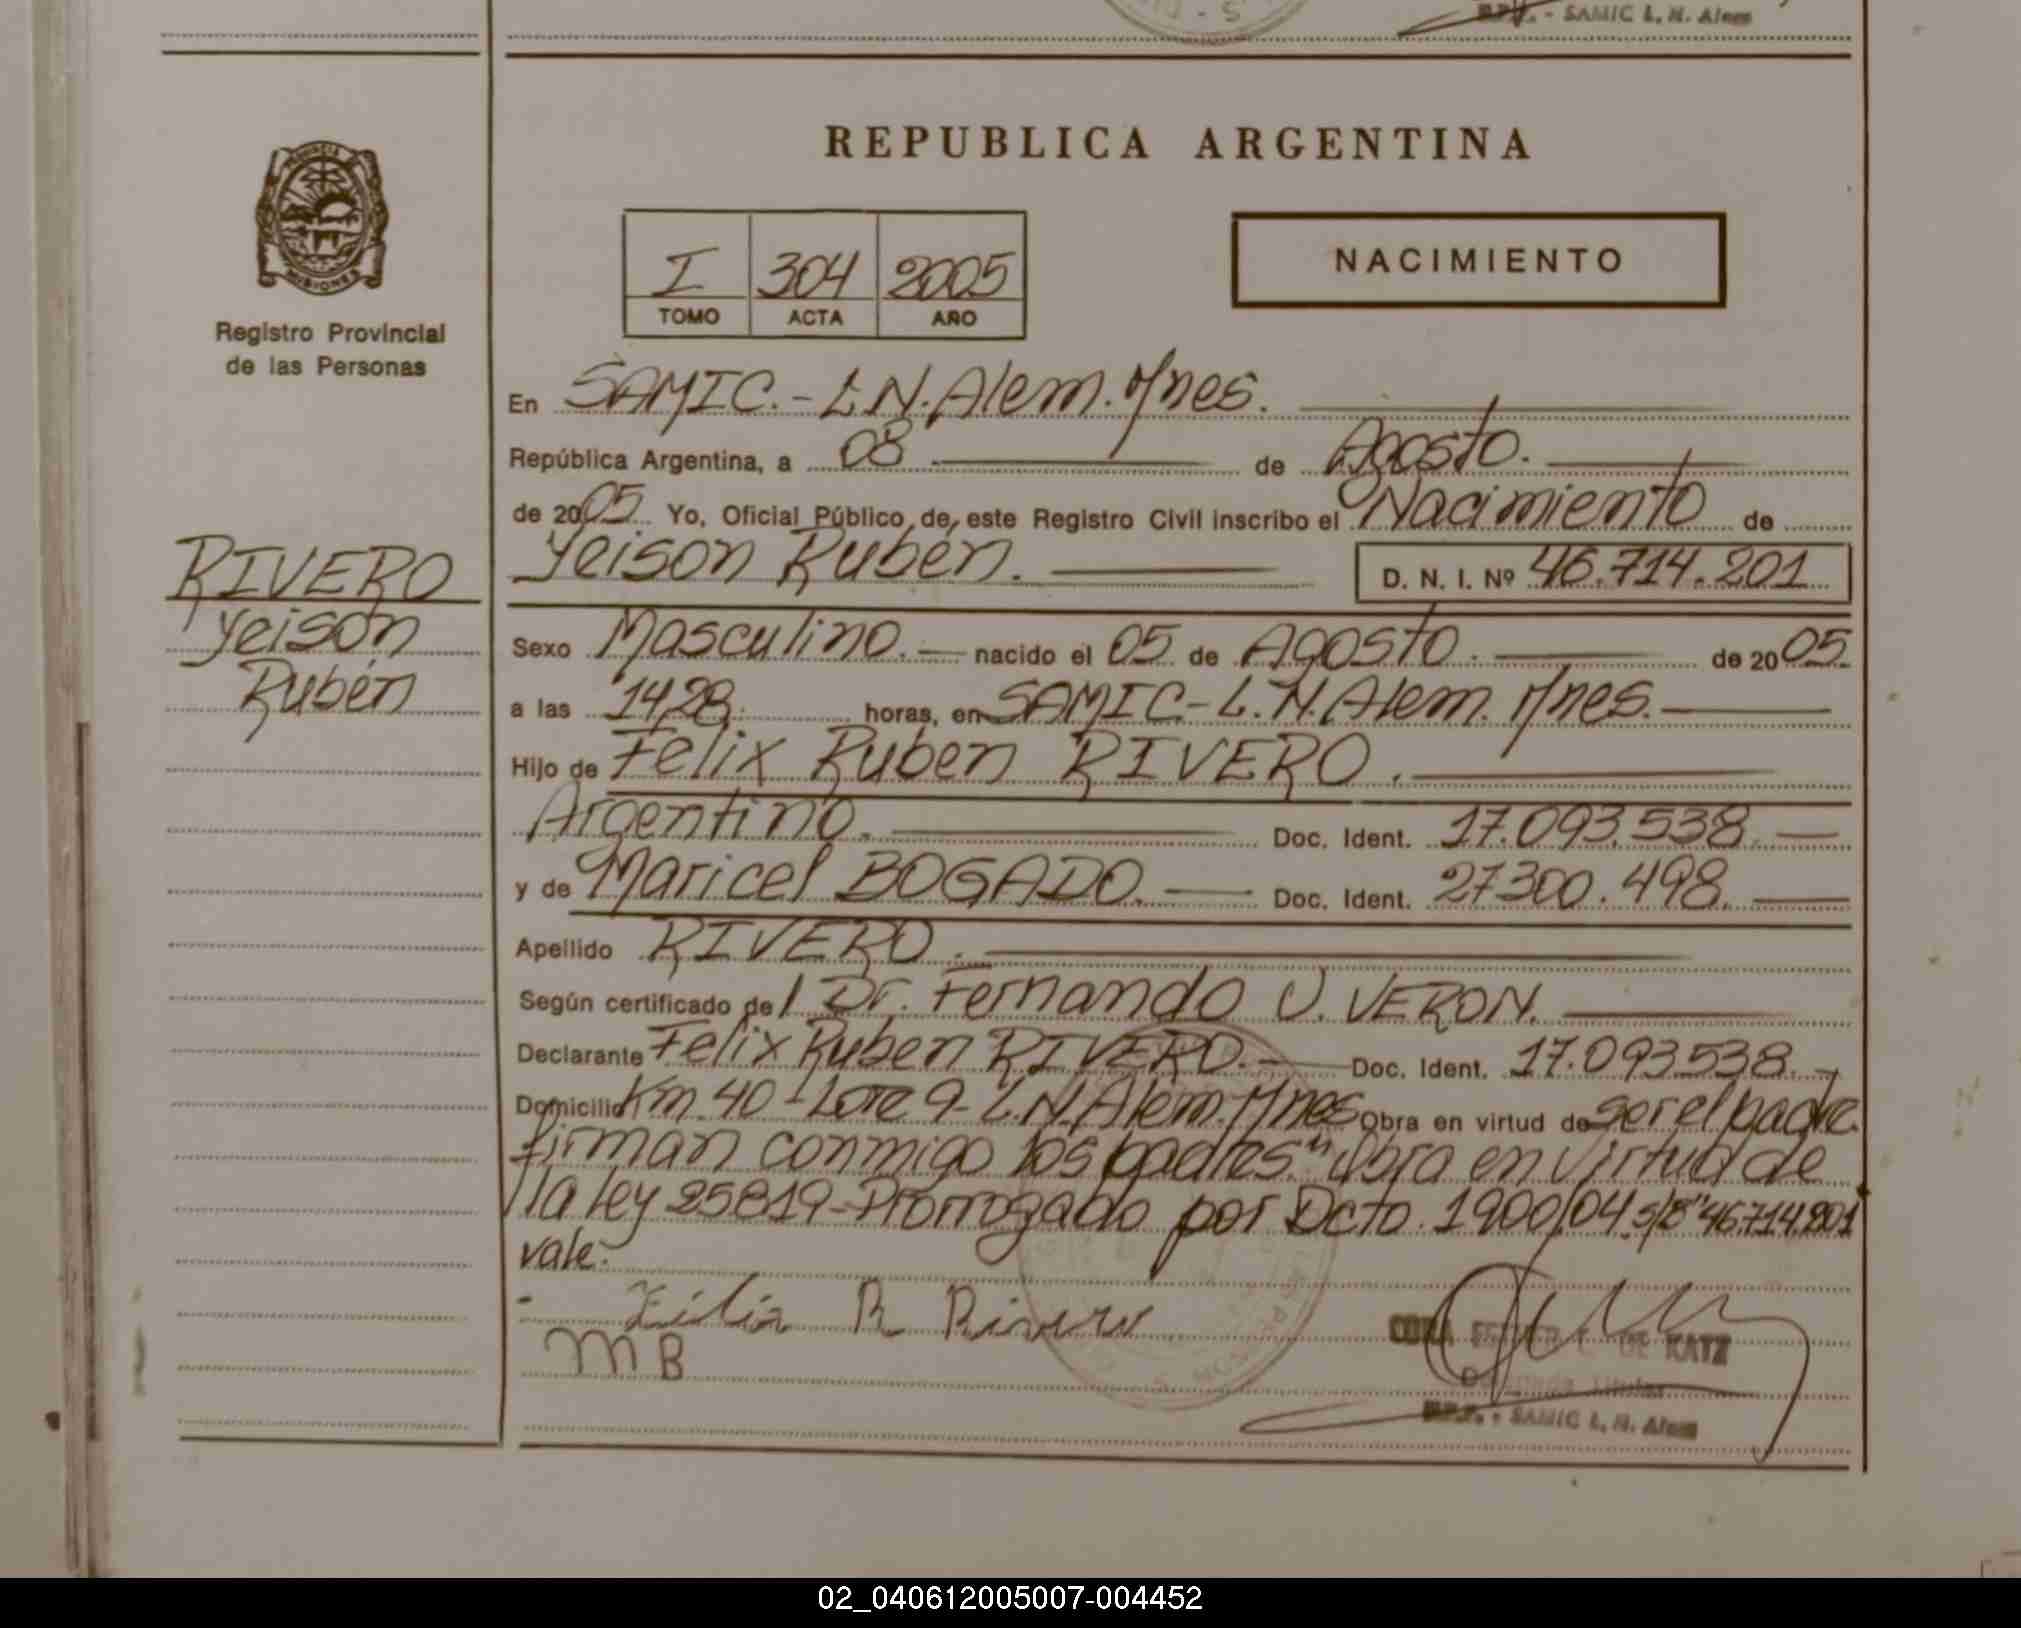 S - D
SAMIC L. N. Alem
REPUBLICA ARGENTINA
PROVINCIA DE
MISIONES
Registro Provincial
de las Personas
I 304 2005
TOMO ACTA AÑO
NACIMIENTO
En SAMIC.- L.N. Alem. Mnes.
República Argentina, a 08 de Agosto.
de 2005 Yo, Oficial Público de este Registro Civil inscribo el Nacimiento de
Yeison Rubén. D. N. I. Nº 46.714.201
RIVERO
Yeison
Rubén
Sexo Masculino. nacido el 05 de Agosto. de 2005.
a las 14,28. horas, en SAMIC.- L.N. Alem. Mnes.
Hijo de Felix Ruben RIVERO.
Argentino. Doc. Ident. 17.093.538.
y de Maricel BOGADO. Doc. Ident. 27300.498.
Apellido RIVERO.
Según certificado del Dr. Fernando J. VERON.
Declarante Felix Ruben RIVERO. Doc. Ident. 17.093538.
Domicilio Km. 40 - Lote 9 - L.N. Alem. Mnes. Obra en virtud de ser el padre.
firman conmigo los padres." Obra en virtud de
la ley 25819 - Prorrogado por Dcto. 1900/04. s/B "46714.201
vale.-
R Rivero
MB
DE KATZ
Titular
SAMIC L. N. Alem
02_040612005007-004452